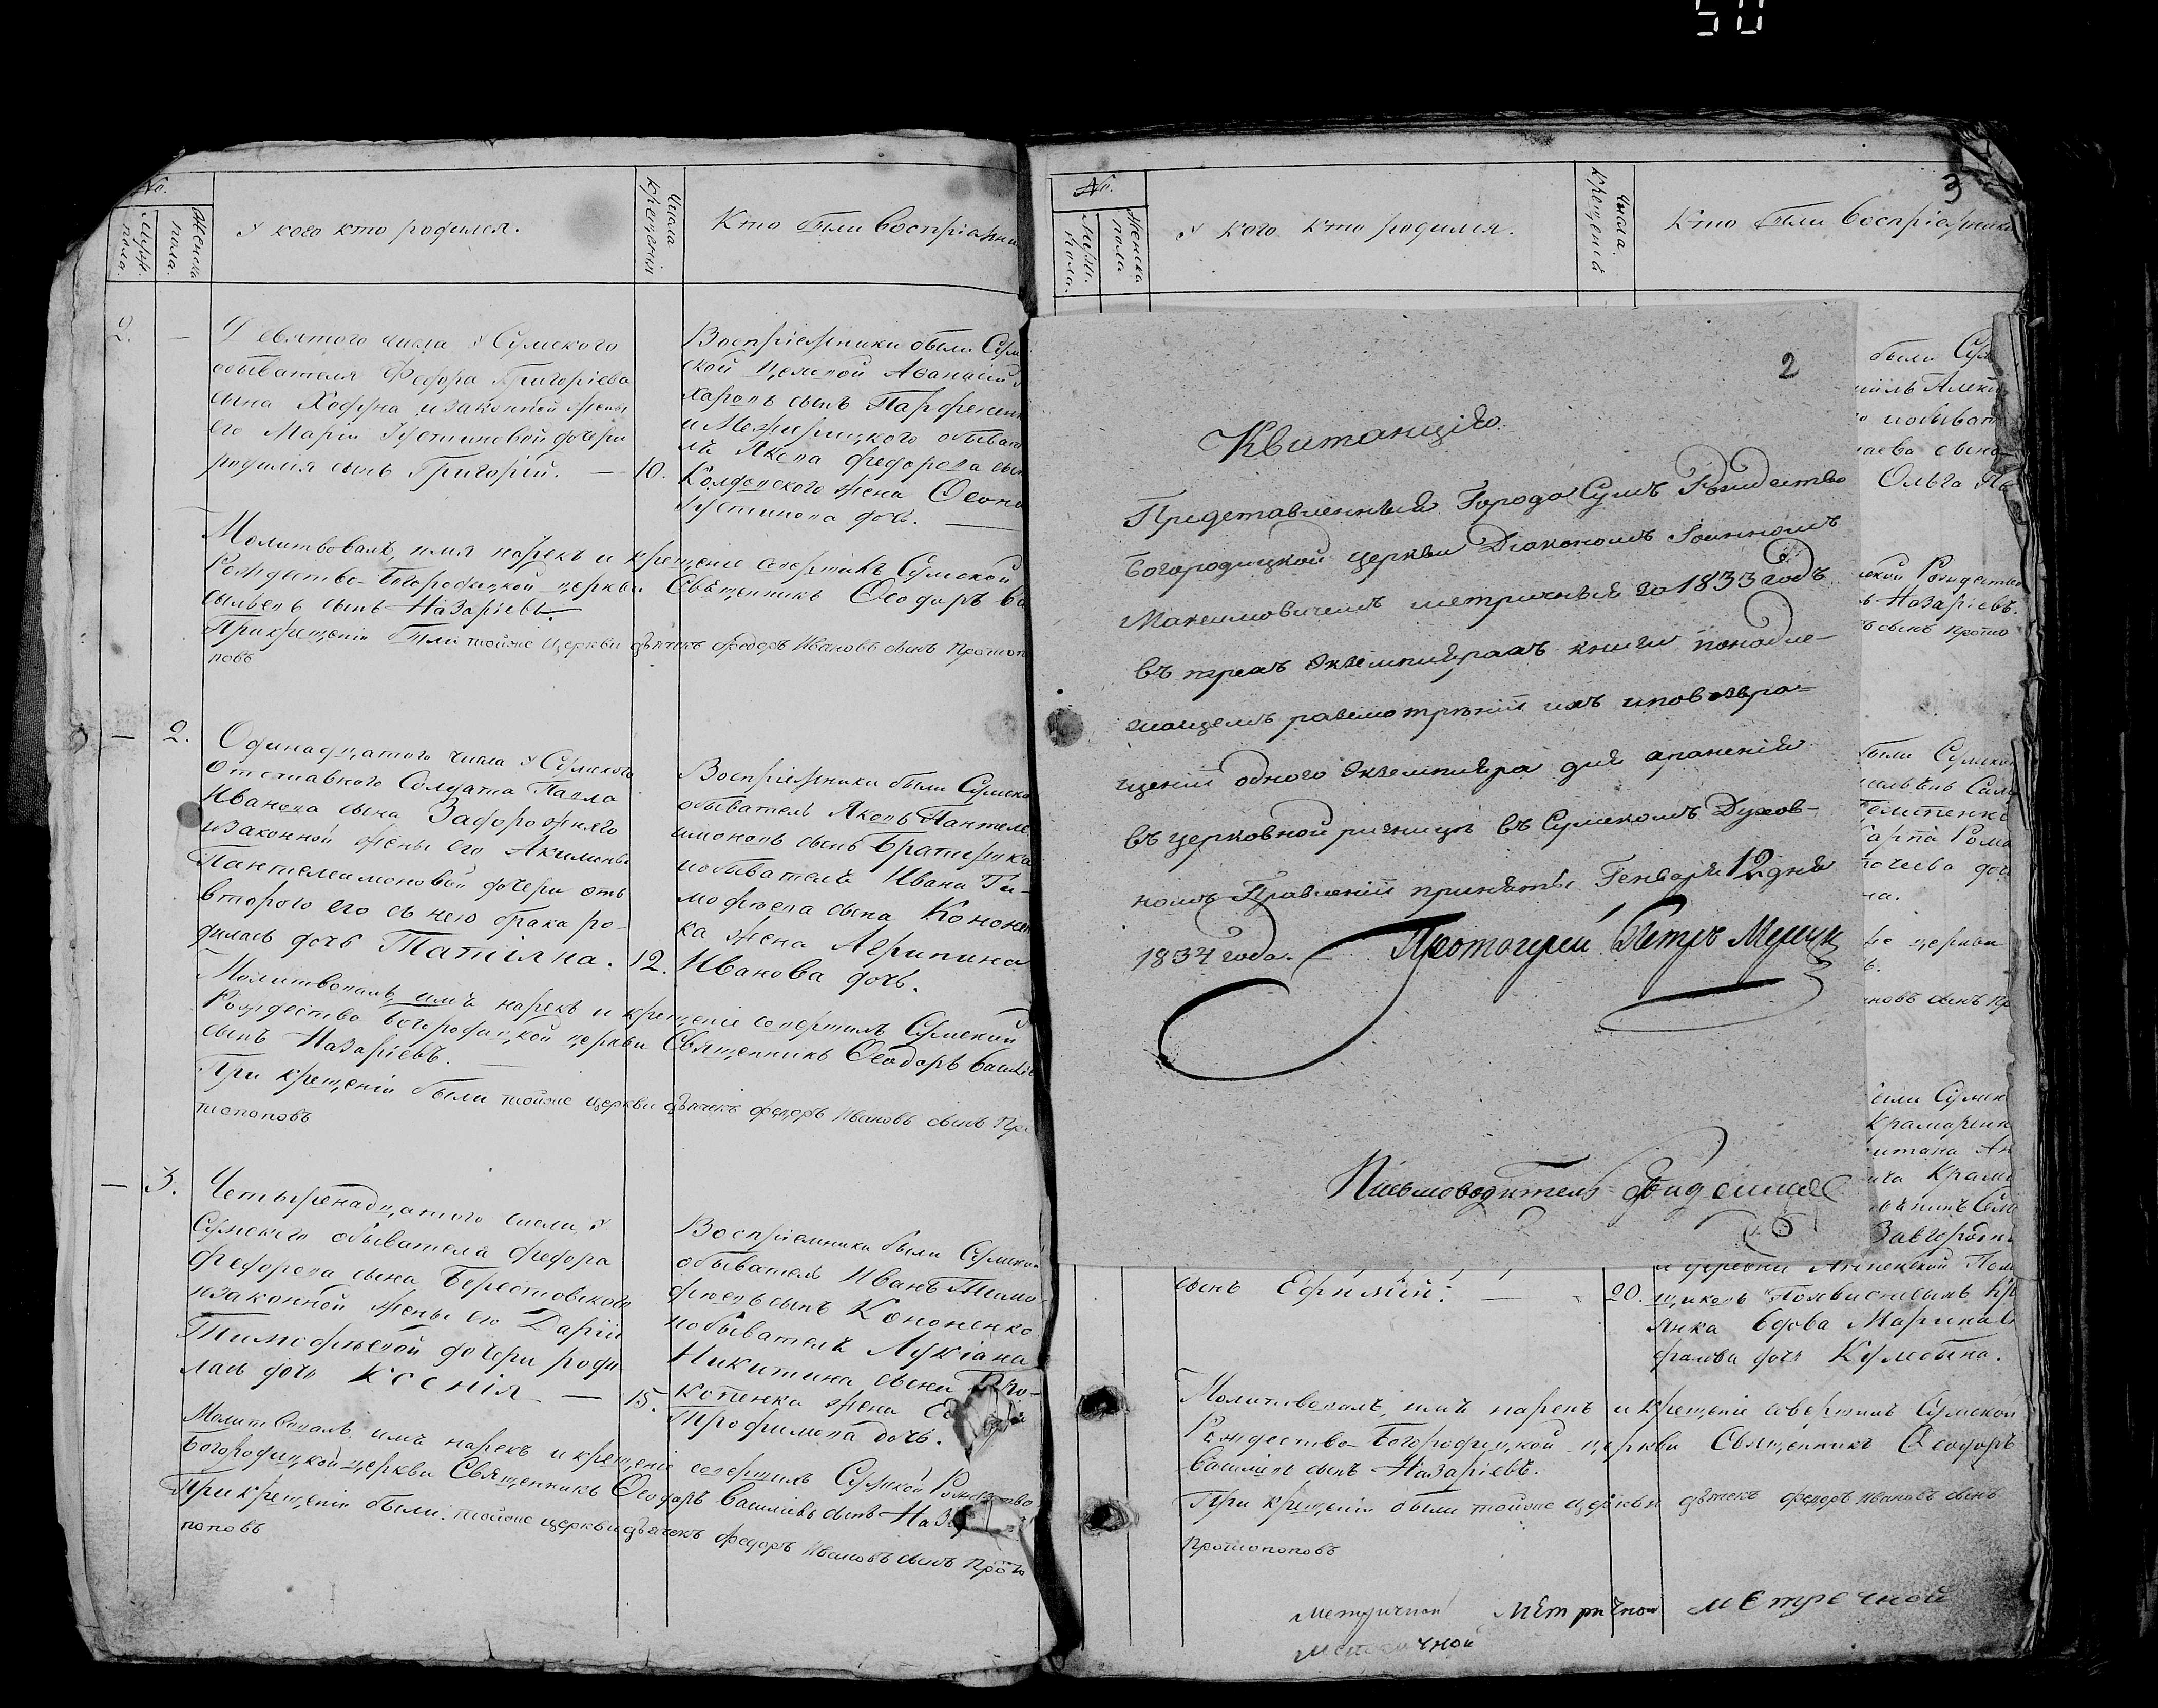 50
№.
Муж. пола.
Женска пола.
У кого кто родился.
Числа крещенія
Кто были Воспріемни
2. —
Девятого числа у Сумского
обывателя Федора Григоріева
сына Ходуна и законной жены
его Маріи Устиновой дочери
родился сынъ Григорій. — 10.
Воспріемники были Сум
ской цеховой Афанасій
харовъ сынъ Парфенен
и Межирицкого обыват
ля Якова Федорова сы
Колдовского жена Феона
Устинова дочь. —
Молитвовалъ, имя нарекъ и крещеніе совершилъ Сумской
Рождество-Богородицкой церкви Священникъ Феодоръ Ва
сильевъ сынъ Назаріевъ.
При крещеніи были тойже церкви дьячекъ Федоръ Ивановъ сынъ Протоп
повъ
— 2.
Одинадцатого числа у Сумского
отставного Солдата Павла
Иванова сына Задорожняго
и законной жены его Акилины
Пантелеимоновой дочери отъ
второго его съ нею брака ро-
дилась дочь Татіяна. 12.
Воспріемники были Сумско
обыватель Яковъ Пантеле
имоновъ сынъ Братушка
и обывателя Ивана Ти-
мофеева сына Кононен
ка жена Агрипина
Иванова дочь.
Молитвовалъ, имя нарекъ и крещеніе совершилъ Сумский
Рождество Богородицкой церкви Священникъ Феодоръ Василіе
сынъ Назаріевъ.
При крещеніи были тойже церкви дьячекъ Федоръ Ивановъ сынъ Про
топоповъ
— 3.
Четыренадцатого числа у
Сумского обывателя Федора
Федорова сына Берестовского
и законной жены его Даріи
Тимофеевой дочери роди
лась дочь Ксенія — 15.
Воспріемники были Сумско
обыватель Иванъ Тимо
феевъ сынъ Кононенко
и обывателя Лукіана
Никитина сына Про-
копенка жена
Трофимова дочь.
Молитвовалъ имя нарекъ и крещеніе совершилъ Сумской Рождество
Богородицкой церкви Священникъ Феодоръ Василіевъ сынъ Наза
При крещеніи были тойже церкви дьячекъ Федоръ Ивановъ сынъ Прото
поповъ
3
№.
Муж. пола.
Женска пола
У кого кто родился.
Числа. крещеній
Кто были Воспріемники
2
Квитанція.
Представленныя Города Сумъ Рождество
Богородицкой церкви Діакономъ Іоанномъ
Максимовичемъ метричныя за 1833 годъ
въ трехъ экземплярахъ книги понадле-
жащемъ разсмотреніи ихъ и повозвра-
щеніи одного экземпляра для храненія
въ церковной ризнице въ Сумскомъ Духов-
номъ Правленіи приняты Генваря 12 дня
1834 года.
Протоіерей Петръ
Письмоводитель
были Сум
и обыват
сына
Ольга
Рождество
Назаріевъ.
сынъ Прото
были Сумско
дочь
церкви
сынъ Пр
были Сумск
сынъ Ефимій. — 20.
янка вдова Марина
дочь
Молитвовалъ, имя нарекъ и крещеніе совершилъ Сумской
Рождество-Богородицкой церкви Священникъ Феодоръ
Василіевъ сынъ Назаріевъ.
При крещеніи были тойже церкви дьячекъ Федоръ Ивановъ сынъ
Протопоповъ
Метричной Метричной Метречной
Метричной